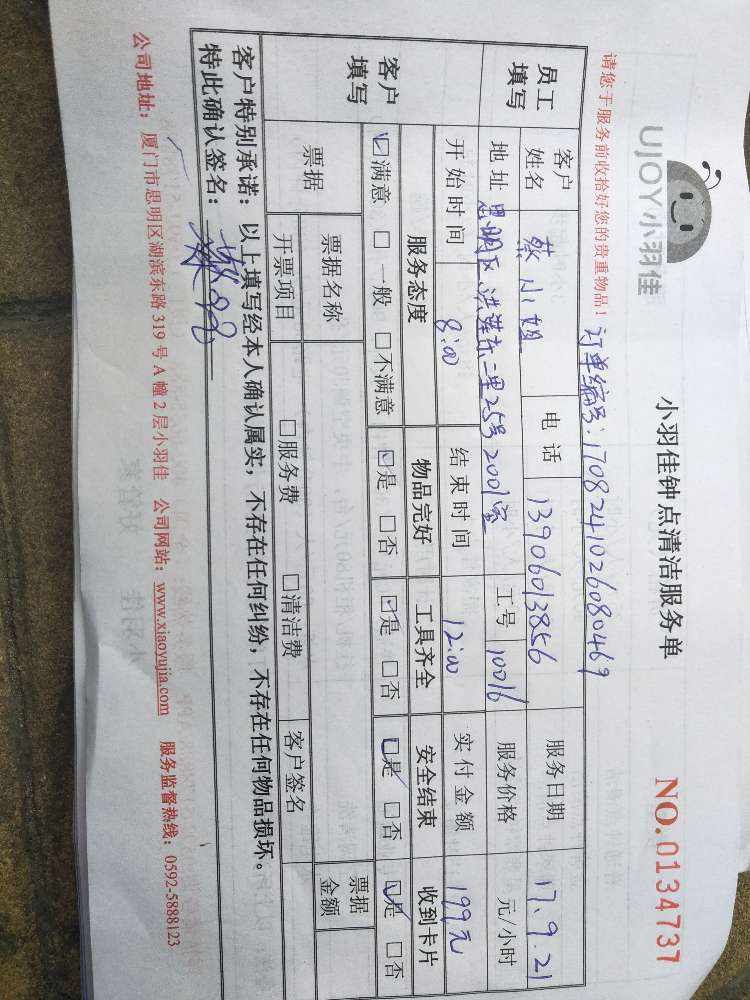 UJOY小羽佳
小羽佳钟点清洁服务单
NO.0134737
请您于服务前收拾好您的贵重物品！
订单编号:1708241026080469
员工填写 客户姓名 蔡小姐 电话 13906013856 服务日期 17、9.21
地址 思明区洪莲东二里25号2001室 工号 10016 服务价格 元/小时
开始时间 8:00 结束时间 12:00 实付金额 199元
客户填写 服务态度 物品完好 工具齐全 安全结束 收到卡片
☑满意 □一般 □不满意 ☑是 □否 ☑是 □否 ☑是 □否 ☑是 □否
票据 票据名称 票据金额
开票项目 □服务费 □清洁费 客户签名
客户特别承诺：以上填写经本人确认属实，不存在任何纠纷，不存在任何物品损坏。
特此确认签名：
公司地址：厦门市思明区湖滨东路319号A幢2层小羽佳 公司网站：www.xiaoyujia.com 服务监督热线：0592-5888123